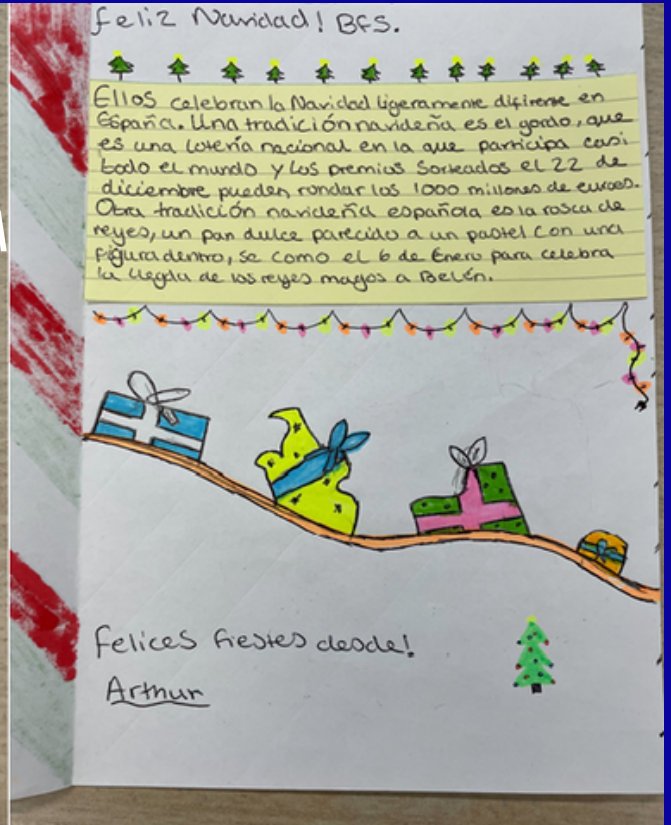 Feliz Navidad! BFS.
Ellos celebran la Navidad ligeramente difirense en
España. Una tradición navideña es el gordo, que
es una lotería nacional en la que participa casi
todo el mundo y los premios sorteados el 22 de
diciembre pueden rondar los 1000 millones de euroes.
Otra tradición navideña española es la rosca de
reyes, un pan dulce parecido a un pastel con una
figura dentro, se come el 6 de Enero para celebra
la llegda de los reyes magos a Belén.
Felices fiestes desde!
Arthur